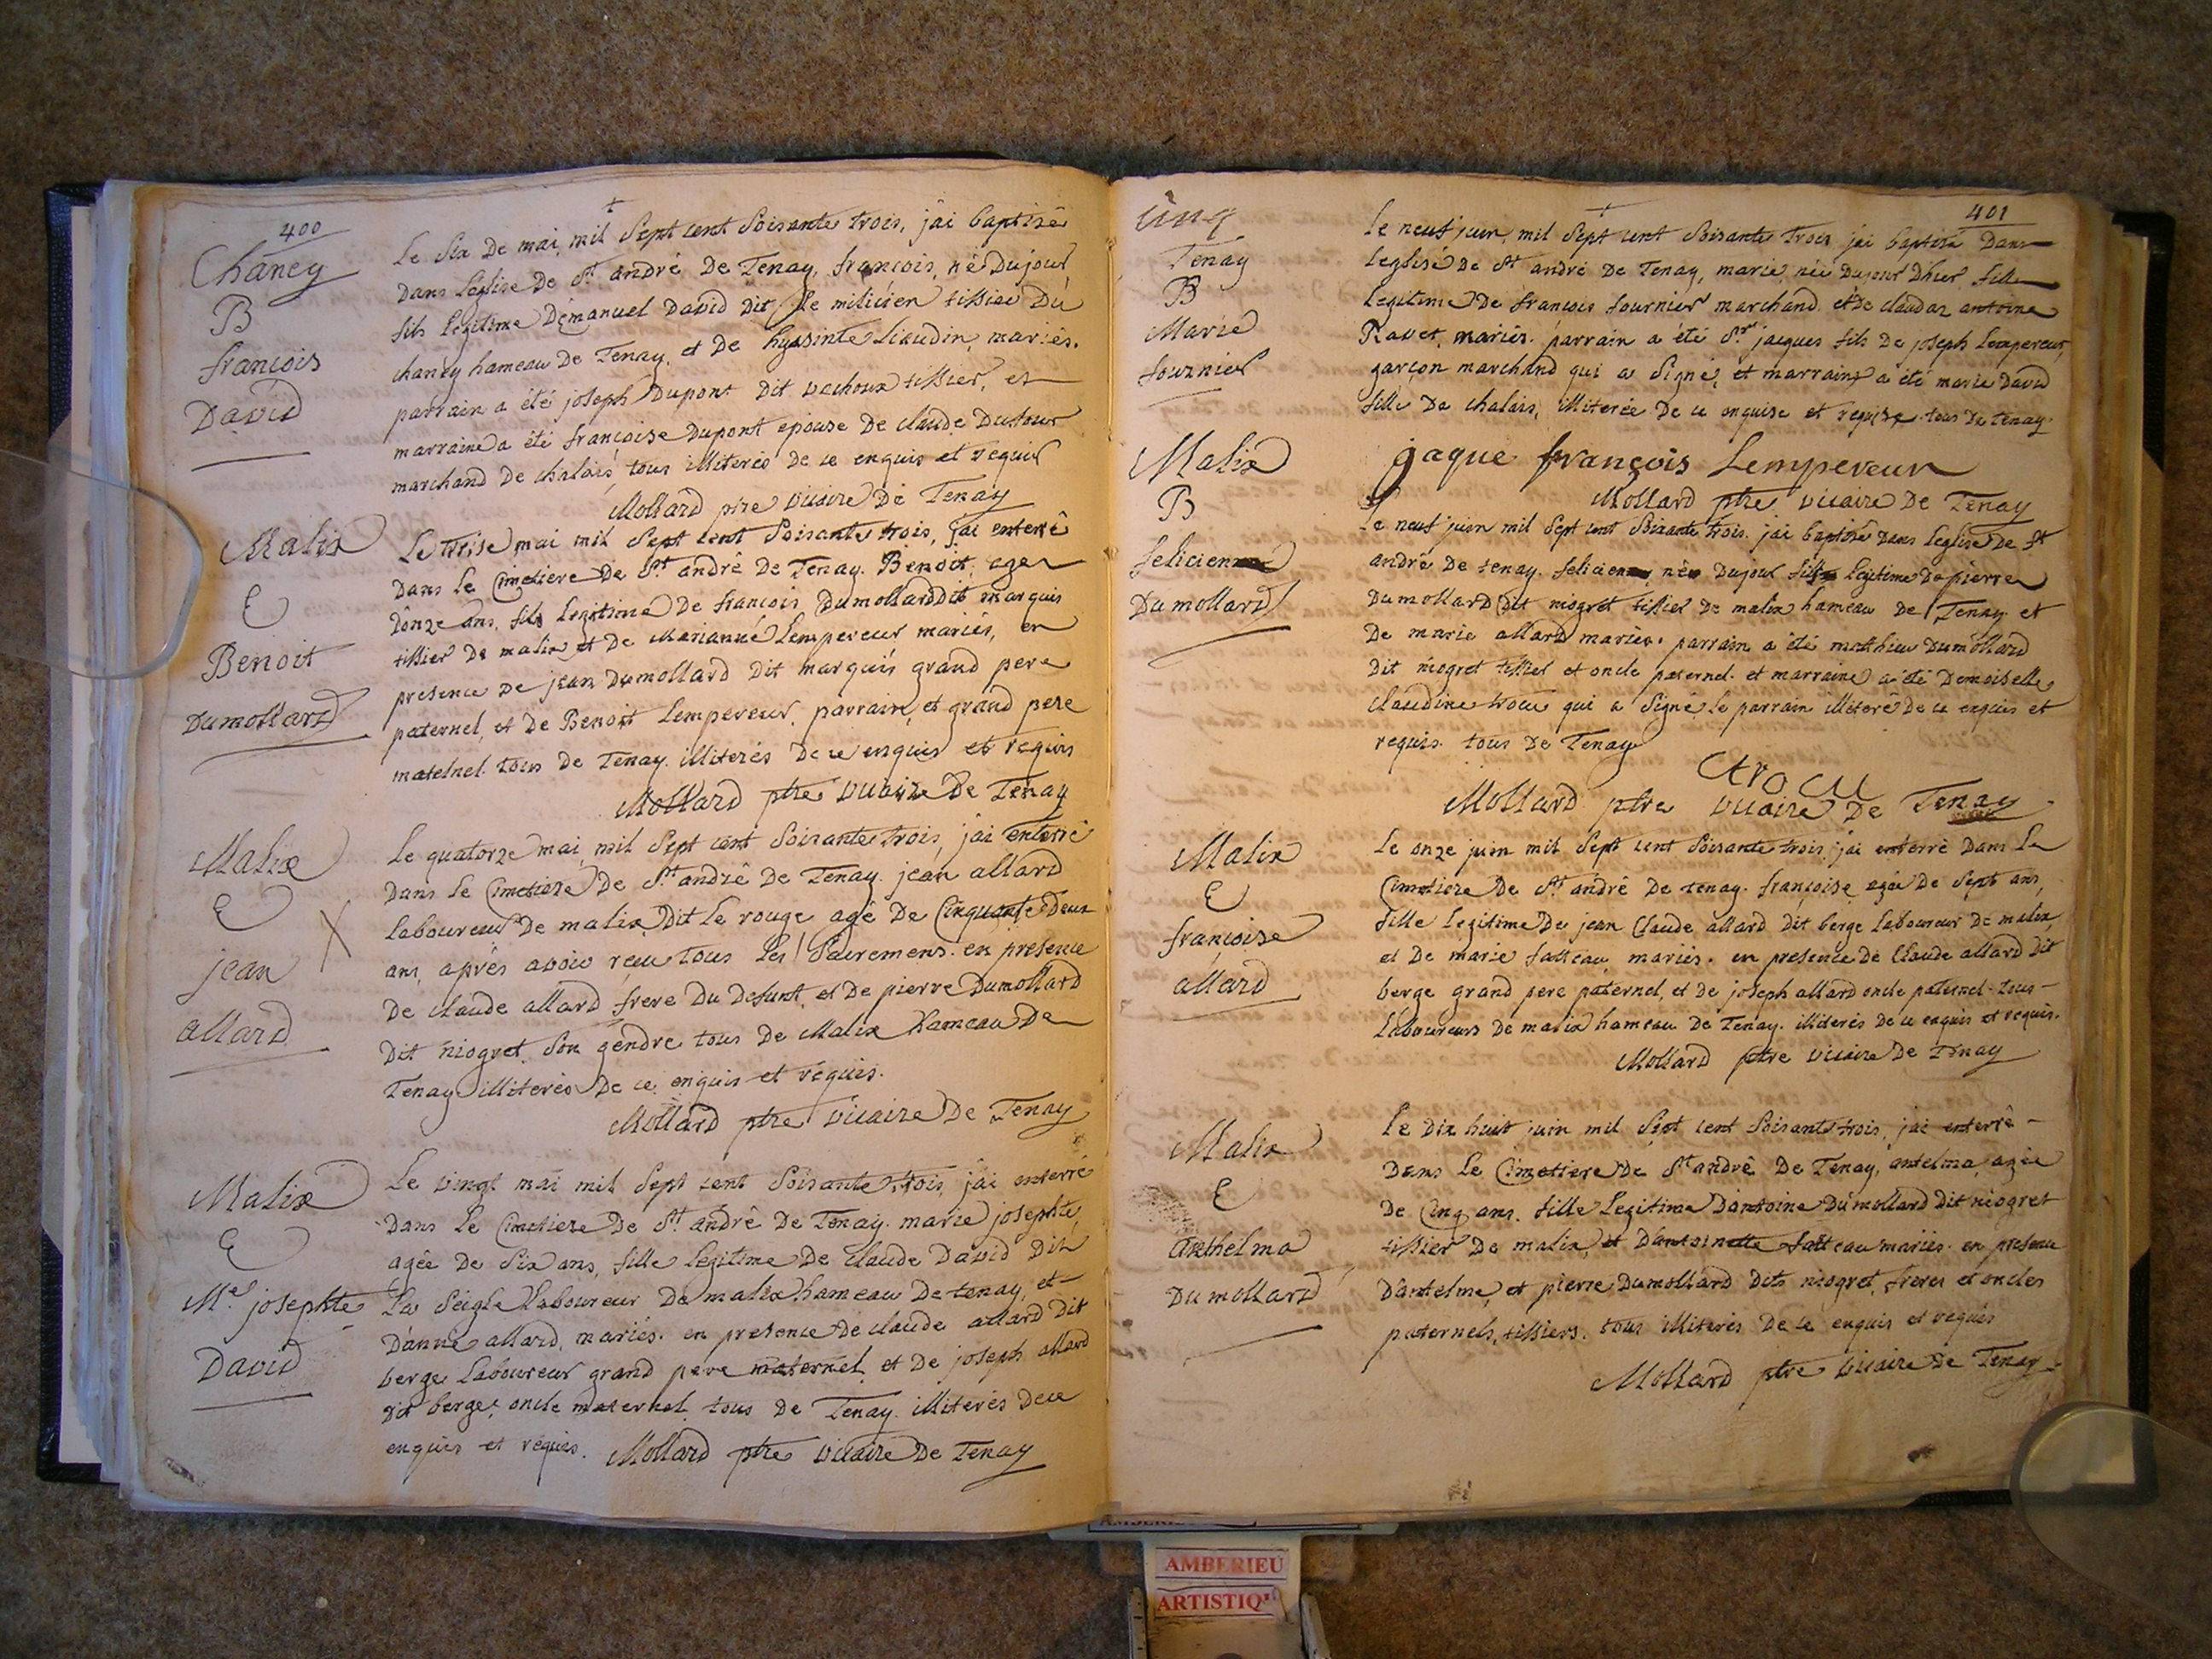 400
Chaney
B
françois
David
Le six de mai, mil sept cent soisante trois, j'ai baptisé
dans l'église de St andré de Tenay, françois, né du jour,
fils légitime d'émanuel David dit le milicien tissier du
chanéy hameau de Tenay, et de hyasinte Liaudin, mariés.
parrain a été joseph Dupont dit vachoux tissier, et
marraine a été françoise Dupont epouse de claude Dufour
marchand de chalais, tous illiterés de ce enquis et requis
Mollard ptre vicaire de Tenay
Malix
E
Benoit
Dumollard
Le treise mai mil sept cent soisante trois, j'ai enterré
dans le Cimetiere de St andré de Tenay. Benoit, agé
d'onze ans, fils légitime de francois Dumollard dit marquis
tissier de malix et de Marianne Lempereur mariés, en
presence de jean Dumollard dit marquis grand pere
paternel, et de Benoit Lempereur, parrain, et grand pere
maternel. tous de Tenay. illiterés de ce enquis et requis
Mollard ptre vicaire de Tenay
Malix
E
jean
allard
X
Le quatorze mai, mil sept cent soisante trois, j'ai enterré
dans le Cimetiere de St andré de Tenay. jean allard
laboureur de malix, dit le rouge agé de Cinquante deux
ans, après avoir reçu tous les sacremens. en presence
de claude allard frere du defunt, et de pierre Dumollard
dit niogret, son gendre tous de Malix hameau de
Tenay illiterés de ce enquis et requis.
Mollard ptre vicaire de Tenay
Malix
E
Me josephte
David
Le vingt mai mil sept cent soisante trois, j'ai enterré
dans le Cimetiere de St andré de Tenay. marie josephte,
agée de six ans, fille légitime de claude David dit
La Seigle laboureur de malix hameau de tenay, et
d'anne allard, mariés. en presence de claude allard dit
berge laboureur grand pere maternel, et de joseph allard
dit berge, oncle maternel. tous de Tenay. illiterés de ce
enquis et requis. Mollard ptre vicaire de Tenay
401
cinq
Tenay
B
Marie
fournier
Le neuf juin, mil sept cent soisante trois j'ai baptisé dans
l'eglise de St andré de Tenay, marie, née du jour d'hier, fille
legitime de francois fournier marchand et de claudaz antoine
Ravet, mariés. parrain a été Sr jacques fils de joseph Lempereur,
garçon marchand qui a signé, et marraine a été marie David
fille de chalais, illiterée de ce enquise et requise. tous de tenay.
jaque françois Lempereur
Mollard ptre vicaire de Tenay
Malix
B
felicien
Dumollard
Le neuf juin mil sept cent soisante trois. j'ai baptisé dans l'eglise de St
andré de tenay. felicien, né du jour fils legitime de pierre
Dumollard dit niogret tissier de malix hameau de Tenay et
de marie allard mariés. parrain a été mathieu Dumollard
dit niogret tissier et oncle paternel. et marraine a été Demoiselle
claudine trocu qui a signé, le parrain illiteré de ce enquis et
requis. tous de Tenay
trocu
Mollard ptre vicaire de Tenay
Malix
E
françoise
allard
Le onze juin mil sept cent soisante trois, j'ai enterré dans le
Cimetiere de St andré de tenay. françoise agée de sept ans,
fille legitime de jean Claude allard dit berge laboureur de malix,
et de marie fatteau mariés. en presence de Claude allard dit
berge grand pere paternel, et de joseph allard oncle paternel. tous
laboureurs de malix hameau de Tenay. illiterés de ce enquis et requis.
Mollard ptre vicaire de Tenay
Malix
E
anthelma
Dumollard
Le dix huit juin mil sept cent soisante trois, j'ai enterré
dans le Cimetiere de St andré de Tenay, antelma, agée
de Cinq ans. fille legitime d'antoine Dumollard dit niogret
tissier de malix, et d'antoinette fatteau mariés. en presence
d'antelme, et pierre Dumollard dits niogret, freres et oncles
paternels, tissiers. tous illiterés de ce enquis et requis
Mollard ptre vicaire de Tenay
AMBERIEU
ARTISTIQ